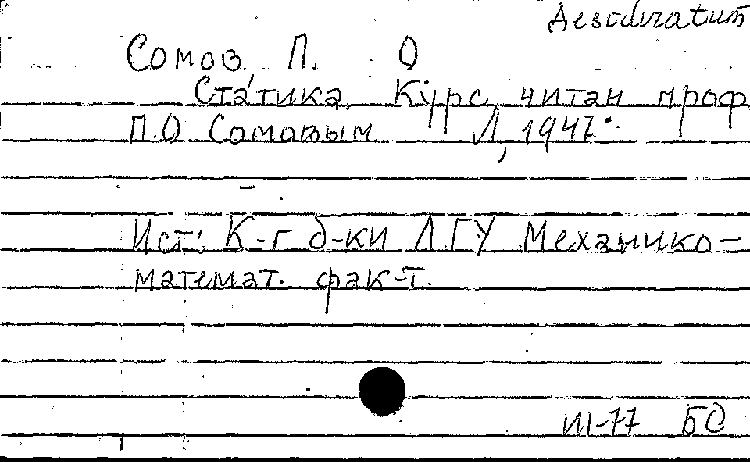 Desideratum
Сомов П. О
Статика Курс, читан проф
П.О Сомовым Л, 1947.
Ист: К-г б-ки ЛГУ Механико-
математ. фак-т.
III-77 БО